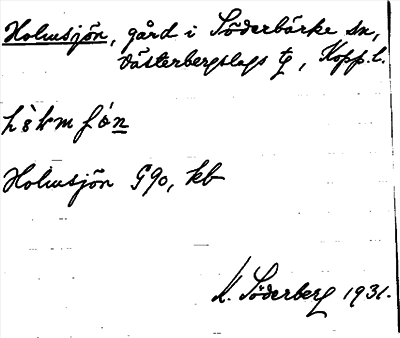 Holmsjön, gård i Söderbärke sn,
Västerbergslags tg, Kopp.l.
Holmsjön G90, kb
K. Söderberg 1931.